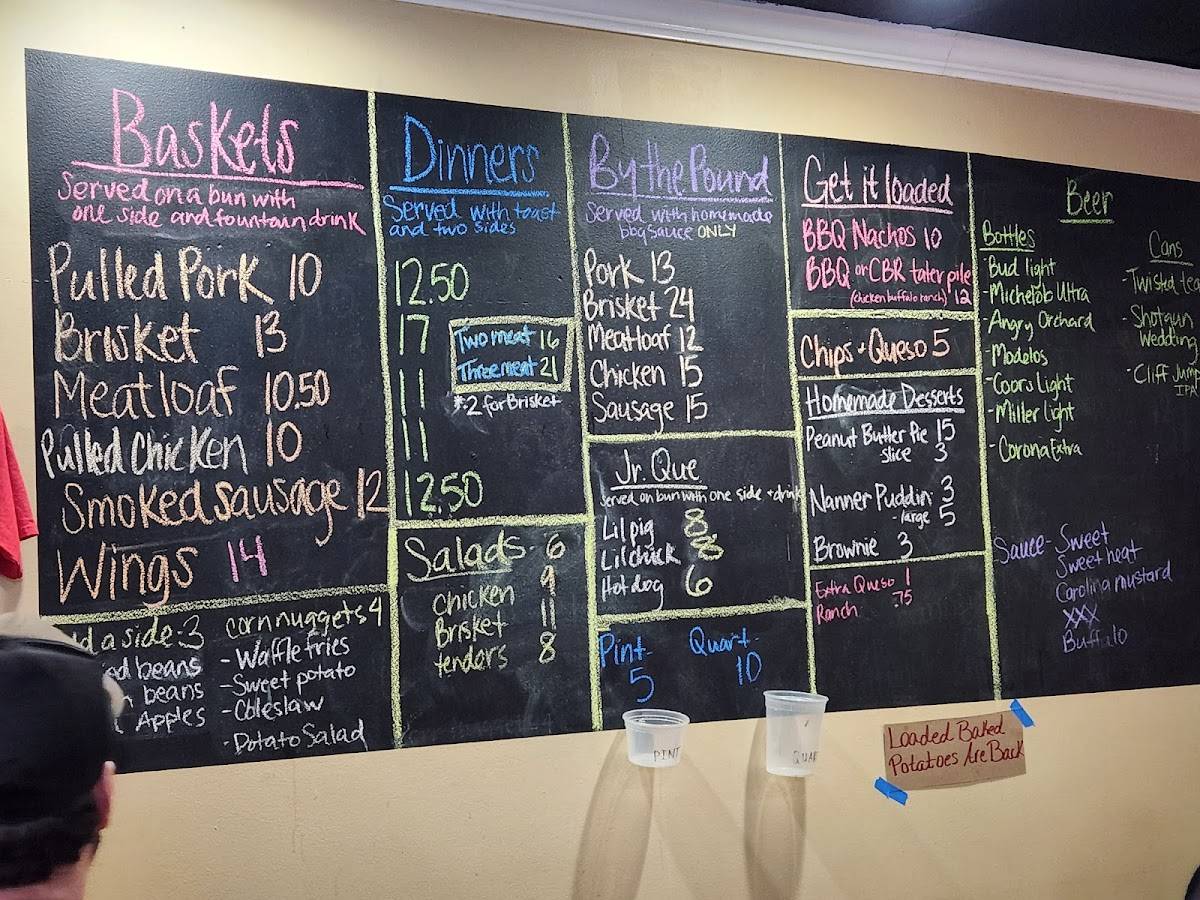 Baskets
Served on a bun with
one side and fountain drink
Pulled Pork 10
Brisket 13
Meatloaf 10.50
Pulled Chicken 10
Smoked sausage 12
Wings 14
a side: 3
beans
beans
Apples
corn nuggets 4
- Waffle fries
- Sweet potato
- Coleslaw
- Potato Salad
Dinners
Served with toast
and two sides
12.50
17
11
11
12.50
Two meat 16
Three meat 21
*.2 for Brisket
Salads - 6
Chicken 9
Brisket 11
tenders 8
By the Pound
Served with homemade
bbq sauce ONLY
Pork 13
Brisket 24
Meatloaf 12
Chicken 15
Sausage 15
Jr. Que
Served on bun with one side + drink
Lil pig 8
Lil chick 8
Hot dog 6
Pint- 5
Quart- 10
PINT
Get it loaded
BBQ Nachos 10
BBQ or CBR tater pile
(chicken buffalo ranch) 12
Chips + Queso 5
Homemade Desserts
Peanut Butter Pie 15
slice 3
Nanner Puddin: 3
- large 5
Brownie 3
Extra Queso 1
Ranch .75
Beer
Bottles
- Bud light
- Michelob Ultra
- Angry Orchard
- Modelos
- Coors light
- Miller light
- Corona Extra
Cans
- Twisted tea
- Shotgun
Wedding
- Cliff Jump
IPA
Sauce - Sweet
Sweet heat
Carolina mustard
XXX
Buffalo
Loaded Baked
Potatoes Are Back